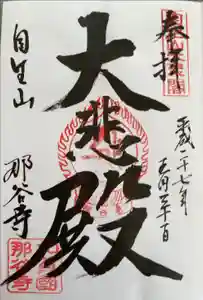 奉拝
平成二十七年
五月三十一日
大悲殿
自生山
那谷寺